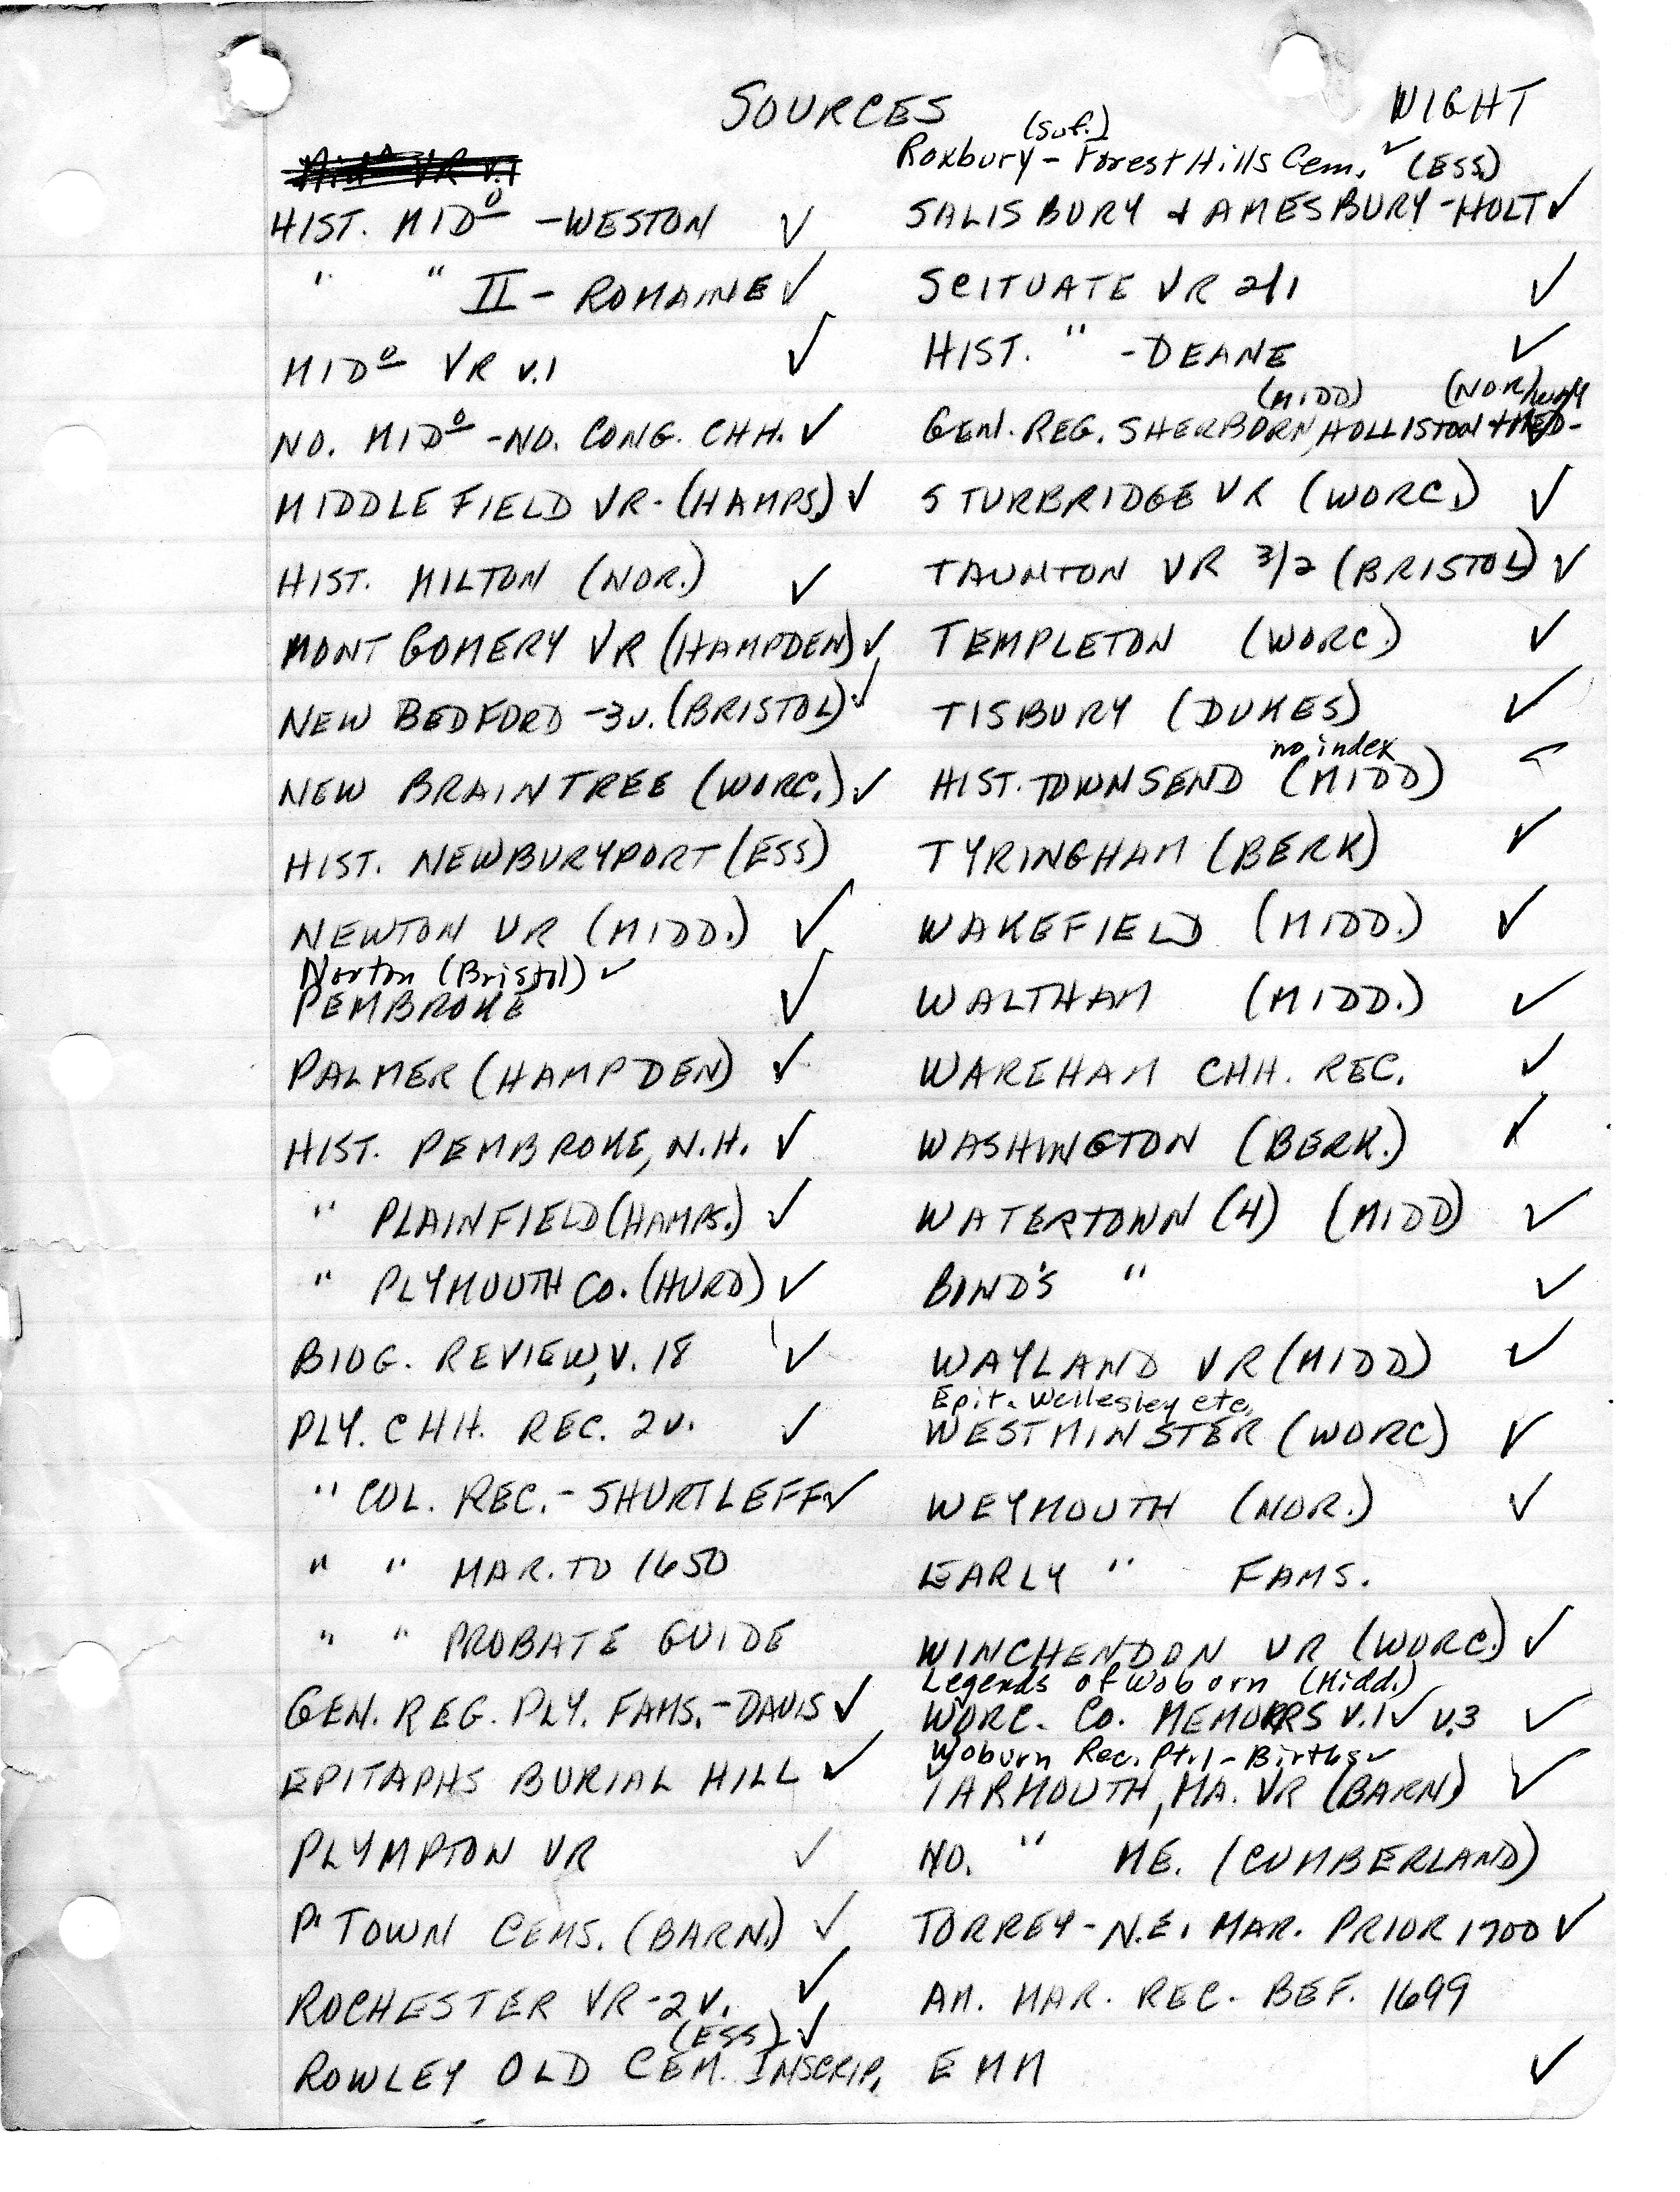 SOURCES
WIGHT
HIST. MIDº - WESTON ✓
" " II - ROMAINE ✓
MIDº VR v.1 ✓
NO. MIDº - NO. CONG. CHH. ✓
MIDDLEFIELD VR - (HAMPS.) ✓
HIST. MILTON (NOR.) ✓
MONTGOMERY VR (HAMPDEN) ✓
NEW BEDFORD - 3v. (BRISTOL) ✓
NEW BRAINTREE (WORC.) ✓
HIST. NEWBURYPORT (ESS)
NEWTON VR (MIDD.) ✓
Norton (Bristol) ✓
PEMBROKE ✓
PALMER (HAMPDEN) ✓
HIST. PEMBROKE, N.H. ✓
" PLAINFIELD (HAMPS.) ✓
" PLYMOUTH CO. (HURD) ✓
BIOG. REVIEW, V. 18 ✓
PLY. CHH. REC. 2v. ✓
" COL. REC. - SHURTLEFF ✓
" " MAR. TO 1650
" " PROBATE GUIDE
GEN. REG. PLY. FAMS. - DAVIS ✓
EPITAPHS BURIAL HILL ✓
PLYMPTON VR ✓
P'TOWN CEMS. (BARN.) ✓
ROCHESTER VR - 2v. ✓
(ESS) ✓
ROWLEY OLD CEM. INSCRIP.
(Suf.)
Roxbury - Forest Hills Cem. ✓ (ESS)
SALISBURY & AMESBURY - HOLT ✓
SCITUATE VR 2/1 ✓
HIST. " - DEANE ✓
(MIDD) (NOR)
GEN. REG. SHERBORN, HOLLISTON + MED-
way
STURBRIDGE VR (WORC.) ✓
TAUNTON VR 3/2 (BRISTOL) ✓
TEMPLETON (WORC.) ✓
TISBURY (DUKES) ✓
no index
HIST. TOWNSEND (MIDD)
TYRINGHAM (BERK) ✓
WAKEFIELD (MIDD.) ✓
WALTHAM (MIDD.) ✓
WAREHAM CHH. REC. ✓
WASHINGTON (BERK.) ✓
WATERTOWN (4) (MIDD) ✓
BOND'S " ✓
WAYLAND VR (MIDD) ✓
Epit. Wellesley etc.
WESTMINSTER (WORC) ✓
WEYMOUTH (NOR.) ✓
EARLY " FAMS.
WINCHENDON VR (WORC.) ✓
Legends of Woborn (Midd.)
WORC. CO. MEMOIRS V.1 ✓ v.3 ✓
Woburn Rec. Pt. 1 - Births ✓
YARMOUTH, MA. VR (BARN) ✓
NO. " ME. (CUMBERLAND)
TORREY - N.E. MAR. PRIOR 1700 ✓
AM. MAR. REC. BEF. 1699
EMM ✓